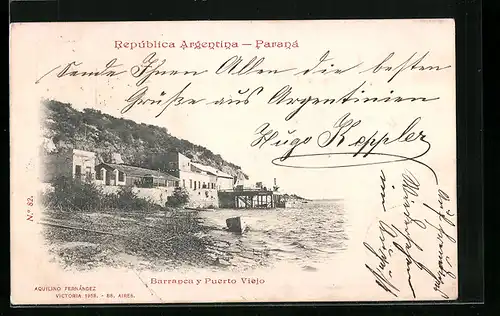 República Argentina — Paraná
Sende Ihnen Allen die besten
Grüße aus Argentinien
Hugo Keppler
Auf
im
N.º 82.
Barranca y Puerto Viejo
AQUILINO FERNÁNDEZ
VICTORIA 1918. - BS. AIRES.